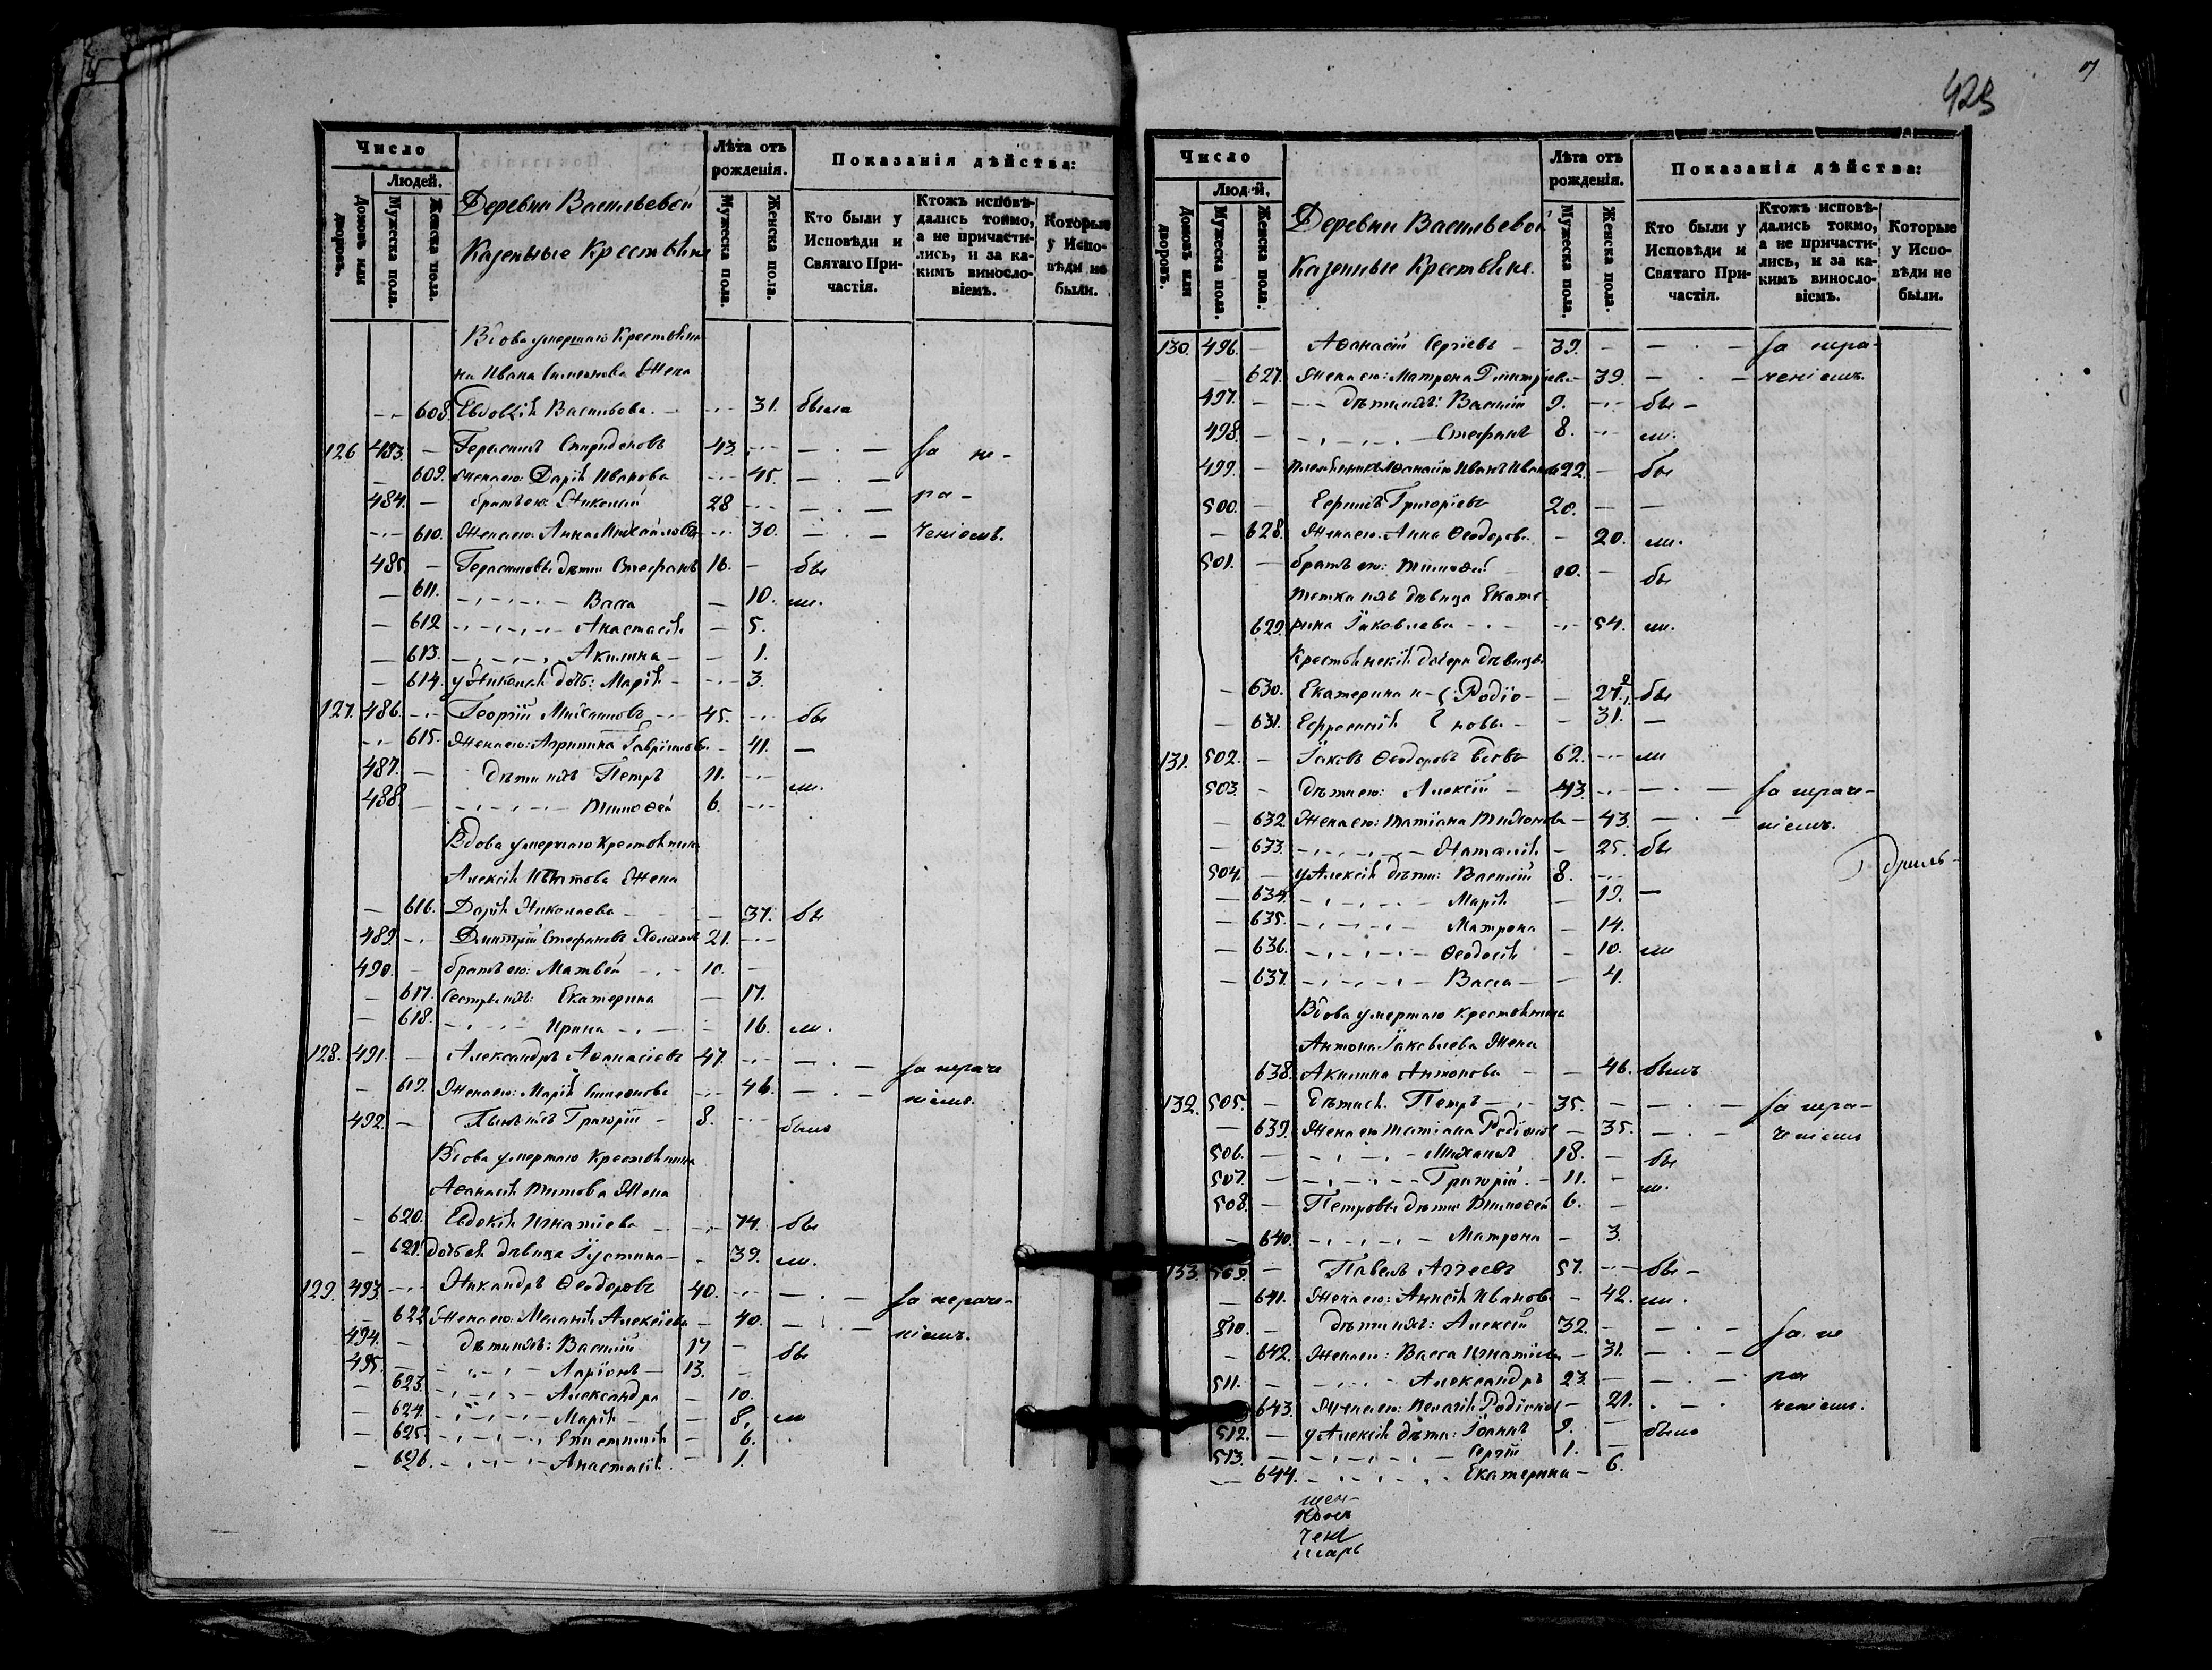 423
Число
Людей.
Домовъ или дворовъ.
Мужеска пола.
Женска пола.
Деревни Васильевой
Казенные Крестьяне
Лѣта отъ рожденія.
Мужеска пола.
Женска пола.
Показанія дѣйства:
Кто были у Исповѣди и Святаго Причастія.
Ктожъ исповѣдались токмо, а не причастились, и за какимъ винословіемъ.
Которые у Исповѣди не были.
Вдова умершаго Крестьяни
на Ивана Симеонова Жена
608. Евдокія Васильева 31. была
126 483. Герасимъ Спиридоновъ 43. За не-
609. Жена его: Дарія Иванова 45.
484. братъ его: Николай 28 ра-
610. Жена его: Анна Михайлова 30. ченіемъ.
485. Герасимовы дѣти: Стефанъ 16. бы
611. Васса 10. ли.
612 Анастасія 5.
613. Акилина 1.
614. у Николая дочь: Марія 3.
127. 486. Георгій 45. бы
615. Жена его: Агрипина Гавріилова 41.
487. Дѣти ихъ Петръ 11. ли.
488. Тимоѳей 6.
Вдова умершаго крестьянина
Алексія Жена
616. Дарія Николаева 37. бы
489. Дмитрій Стефановъ 21.
490. братъ его: Матвѣй 10.
617. Сестры ихъ: Екатерина 17.
618. Ирина 16. ли.
128. 491. Александръ Аѳанасіевъ 47. За нераче
619. Жена его: Марія Симеонова 46. ніемъ.
492. Григорій 8. былъ
Вдова умершаго Крестьянина
Аѳанасія Титова Жена
620. Евдокія Игнатіева 74. бы
621. дочь ея дѣвица Іустина 39. ли.
129. 493. Никандръ Ѳеодоровъ 40. За нераче-
622 Жена его: Меланія Алексіева 40. ніемъ.
494. Дѣти ихъ: Василій 17 бы
495. Ларіонъ 13.
623. Александра 10.
624. Марія 8. ли
625. Епистимія 6.
626. Анастасія. 1.
Число
Людей.
Домовъ или дворовъ.
Мужеска пола.
Женска пола.
Деревни Васильевой
Казенные Крестьяне.
Лѣта отъ рожденія.
Мужеска пола.
Женска пола.
Показанія дѣйства:
Кто были у Исповѣди и Святаго Причастія.
Ктожъ исповѣдались токмо, а не причастились, и за какимъ винословіемъ.
Которые у Исповѣди не были.
130. 496. Аѳанасій Сергіевъ 39. За нера-
627. Жена его: Матрона Дмитріева 39. ченіемъ.
497. дѣти ихъ: Василій 9. бы
498. Стефанъ 8. ли.
499. племянникъ Аѳанасія Иванъ 22. бы
500. Ефимъ Григоріевъ 20.
628. Жена его: Анна Ѳеодорова 20. ли.
501. братъ его: Тимоѳей 10. бы
тетка ихъ дѣвица Екате
629. рина Іаковлева 54. ли.
Крестьянскія дочери дѣвицы
630. Екатерина и Родіо- 27. бы
631. Ефросинія новы 31.
131. 502. Іаковъ Ѳеодоровъ вдовъ 62. ли
503. Дѣти его: Алексій 43. За нераче-
632. Жена его: Татіана Тихонова 43. ніемъ.
633. Наталія 25. бы
504. у Алексія дѣти: Василій 8.
634. Марія 19.
635. Матрона 14.
636. Ѳеодосія 10. ли
637. Васса 4.
Вдова умершаго крестьянина
Антона Іаковлева Жена
638. Акилина Антонова 46. былъ
132. 505. Дѣти ея: Петръ 35. За нера-
639. Жена его Татіана Родіонова 35. ченіемъ
506. Михаилъ 18. бы
507. Григорій 11. ли.
508. Петровы дѣти Тимоѳей 6.
640. Матрона 3.
133. 509. Павелъ Аггеевъ 57. бы
641. Жена его: Анисія Иванова 42. ли.
510. дѣти ихъ: Алексій 32. За не
642. Жена его: Васса Игнатіева 31.
511. Александръ 23. ра
643. Жена его: Пелагія Родіонова 21. ченіемъ.
512. у Алексія дѣти: Іоаннъ 9. были
513. Сергій 1.
644. Екатерина 6.